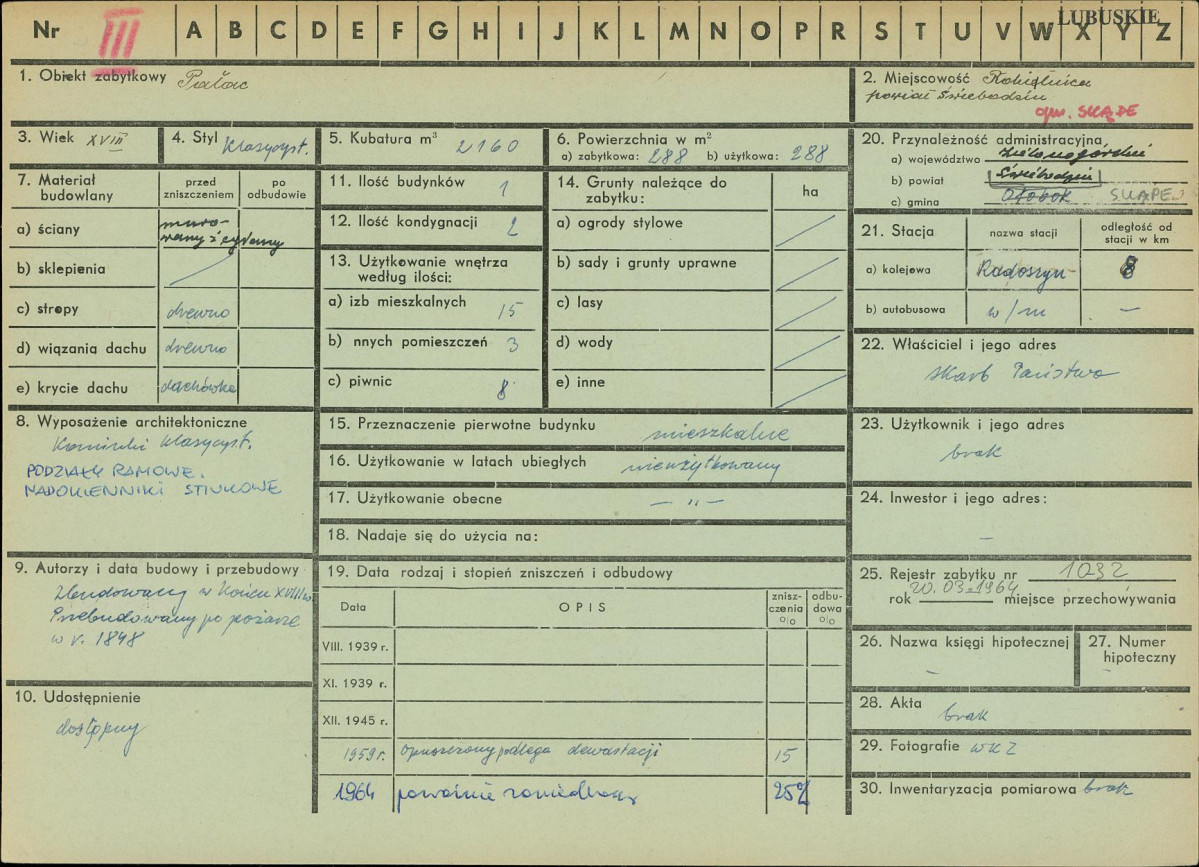 LUBUSKIE
Nr III A B C D E F G H I J K L M N O P R S T U V W X Y Z
1. Obiekt zabytkowy Pałac
2. Miejscowość Rokitnica
powiat Świebodzin
gm. SKĄPE
3. Wiek XVIII
4. Styl klasycyst.
5. Kubatura m³ 2160
6. Powierzchnia w m²
a) zabytkowa: 288 b) użytkowa: 288
7. Materiał budowlany
przed zniszczeniem
po odbudowie
a) ściany murowany z cegły
b) sklepienia
c) stropy drewno
d) wiązania dachu drewno
e) krycie dachu dachówka
8. Wyposażenie architektoniczne
Kominki klasycyst.
PODZIAŁY RAMOWE.
NADOKIENNIKI STIUKOWE
9. Autorzy i data budowy i przebudowy
Zbudowany w końcu XVIII w
Przebudowany po pożarze
w r. 1848
10. Udostępnienie
dostępny
11. Ilość budynków 1
12. Ilość kondygnacji 2
13. Użytkowanie wnętrza
według ilości:
a) izb mieszkalnych 15
b) nnych pomieszczeń 3
c) piwnic 8
14. Grunty należące do
zabytku:
ha
a) ogrody stylowe
b) sady i grunty uprawne
c) lasy
d) wody
e) inne
15. Przeznaczenie pierwotne budynku mieszkalne
16. Użytkowanie w latach ubiegłych nieużytkowany
17. Użytkowanie obecne — „ —
18. Nadaje się do użycia na:
19. Data rodzaj i stopień zniszczeń i odbudowy
Data
OPIS
znisz-
czenia
%
odbu-
dowa
%
VIII. 1939 r.
XI. 1939 r.
XII. 1945 r.
1959 r. opuszczony podlega dewastacji 15
1964 poważnie zaniedbany 25%
20. Przynależność administracyjna
a) województwo zielonogórskie
b) powiat Świebodzin
c) gmina Ołobok SKĄPE
21. Stacja
nazwa stacji
odległość od
stacji w km
a) kolejowa Radoszyn 8
b) autobusowa w/m —
22. Właściciel i jego adres
Skarb Państwa
23. Użytkownik i jego adres
brak
24. Inwestor i jego adres:
—
25. Rejestr zabytku nr 1032
rok 20.03.1964 miejsce przechowywania
26. Nazwa księgi hipotecznej
—
27. Numer
hipoteczny
—
28. Akta
brak
29. Fotografie WKZ
30. Inwentaryzacja pomiarowa brak